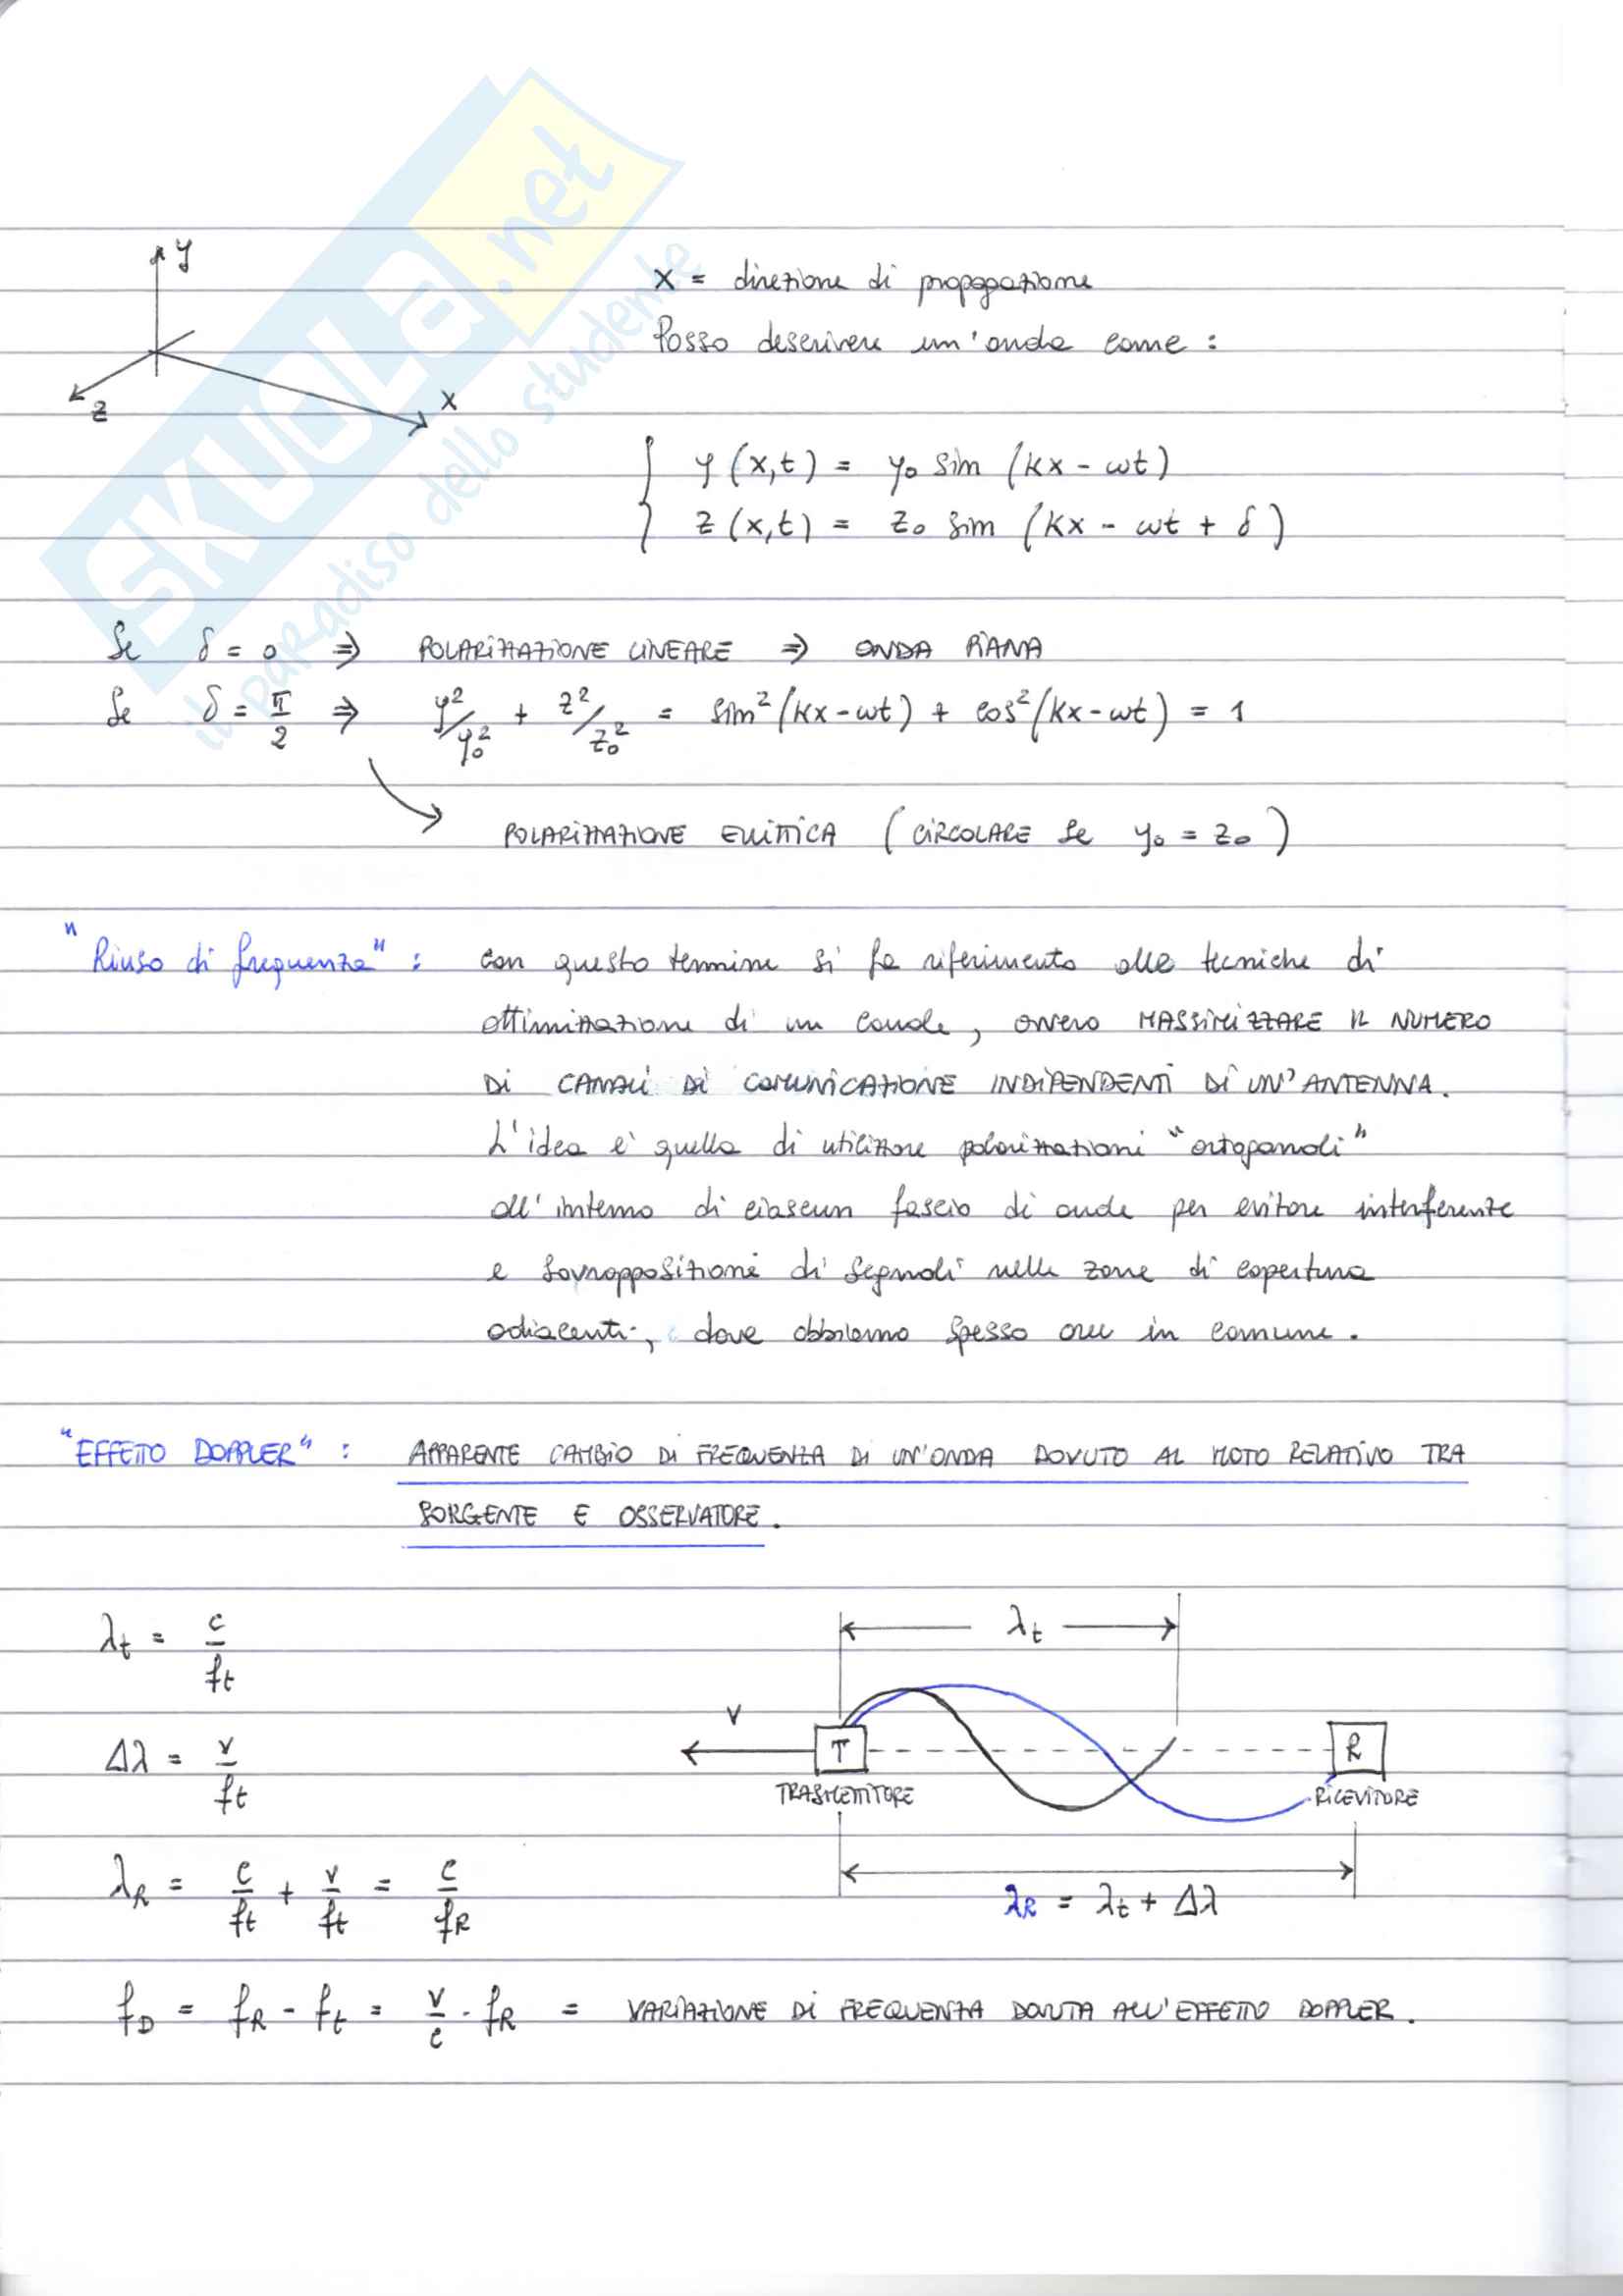 SKUOLA.net
il paradiso dello studente
y
z
x
x = direzione di propagazione
Posso descrivere un'onda come :
y (x,t) = y₀ sin (kx - ωt)
z (x,t) = z₀ sin (kx - ωt + δ)
Se δ = 0 ⇒ POLARIZZAZIONE LINEARE ⇒ ONDA PIANA
Se δ = π/2 ⇒ y²/y₀² + z²/z₀² = sin² (kx - ωt) + cos² (kx - ωt) = 1
POLARIZZAZIONE ELLITTICA ( CIRCOLARE se y₀ = z₀ )
"Riuso di frequenza" : con questo termine si fa riferimento alle tecniche di
ottimizzazione di un canale, ovvero MASSIMIZZARE IL NUMERO
DI CANALI DI COMUNICAZIONE INDIPENDENTI DI UN'ANTENNA.
L'idea è quella di utilizzare polarizzazioni "ortogonali"
all'interno di ciascun fascio di onde per evitare interferenze
e sovrapposizioni di segnali nelle zone di copertura
adiacenti, dove abbiamo spesso aree in comune.
"EFFETTO DOPPLER" : APPARENTE CAMBIO DI FREQUENZA DI UN'ONDA DOVUTO AL MOTO RELATIVO TRA
SORGENTE E OSSERVATORE.
λt = c/ft
λt
Δλ = v/ft
v
T
R
TRASMETTITORE
RICEVITORE
λR = c/ft + v/ft = c/fR
λR = λt + Δλ
fD = fR - ft = v/c · fR = VARIAZIONE DI FREQUENZA DOVUTA ALL'EFFETTO DOPPLER.